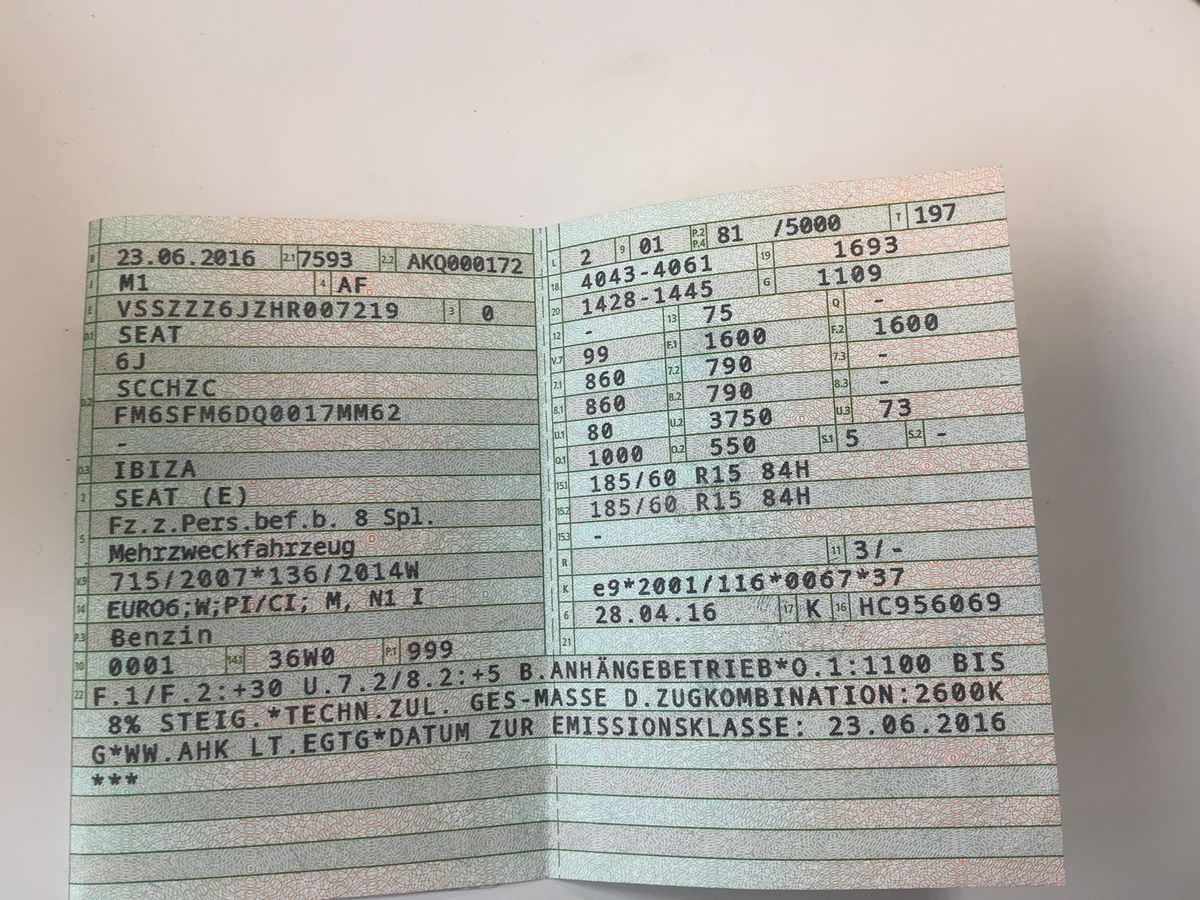 B 23.06.2016 2.1 7593 2.2 AKQ000172
J M1 4 AF
E VSSZZZ6JZHR007219 3 0
D.1 SEAT
6J
D.2 SCCHZC
FM6SFM6DQ0017MM62
-
D.3 IBIZA
2 SEAT (E)
5 Fz.z.Pers.bef.b. 8 Spl.
Mehrzweckfahrzeug
V.9 715/2007*136/2014W
14 EURO6;W;PI/CI; M, N1 I
P.3 Benzin
10 0001 14.1 36W0 P.1 999
L 2 9 01 P.2 P.4 81 /5000 T 197
18 4043-4061 19 1693
20 1428-1445 G 1109
12 - 13 75 Q -
V.7 99 F.1 1600 F.2 1600
7.1 860 7.2 790 7.3 -
8.1 860 8.2 790 8.3 -
U.1 80 U.2 3750 U.3 73
O.1 1000 O.2 550 S.1 5 S.2 -
15.1 185/60 R15 84H
15.2 185/60 R15 84H
15.3 -
R 11 3/-
K e9*2001/116*0067*37
6 28.04.16 17 K 16 HC956069
21
22 F.1/F.2:+30 U.7.2/8.2:+5 B.ANHÄNGEBETRIEB*O.1:1100 BIS
8% STEIG.*TECHN.ZUL. GES-MASSE D.ZUGKOMBINATION:2600K
G*WW.AHK LT.EGTG*DATUM ZUR EMISSIONSKLASSE: 23.06.2016
***